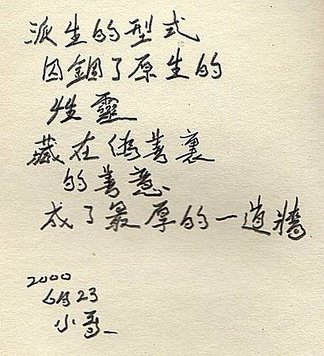 派生的型式
因錮了原生的
性靈
藏在偽善裏
的善意
成了最厚的一道牆
2000
6月23
小哥